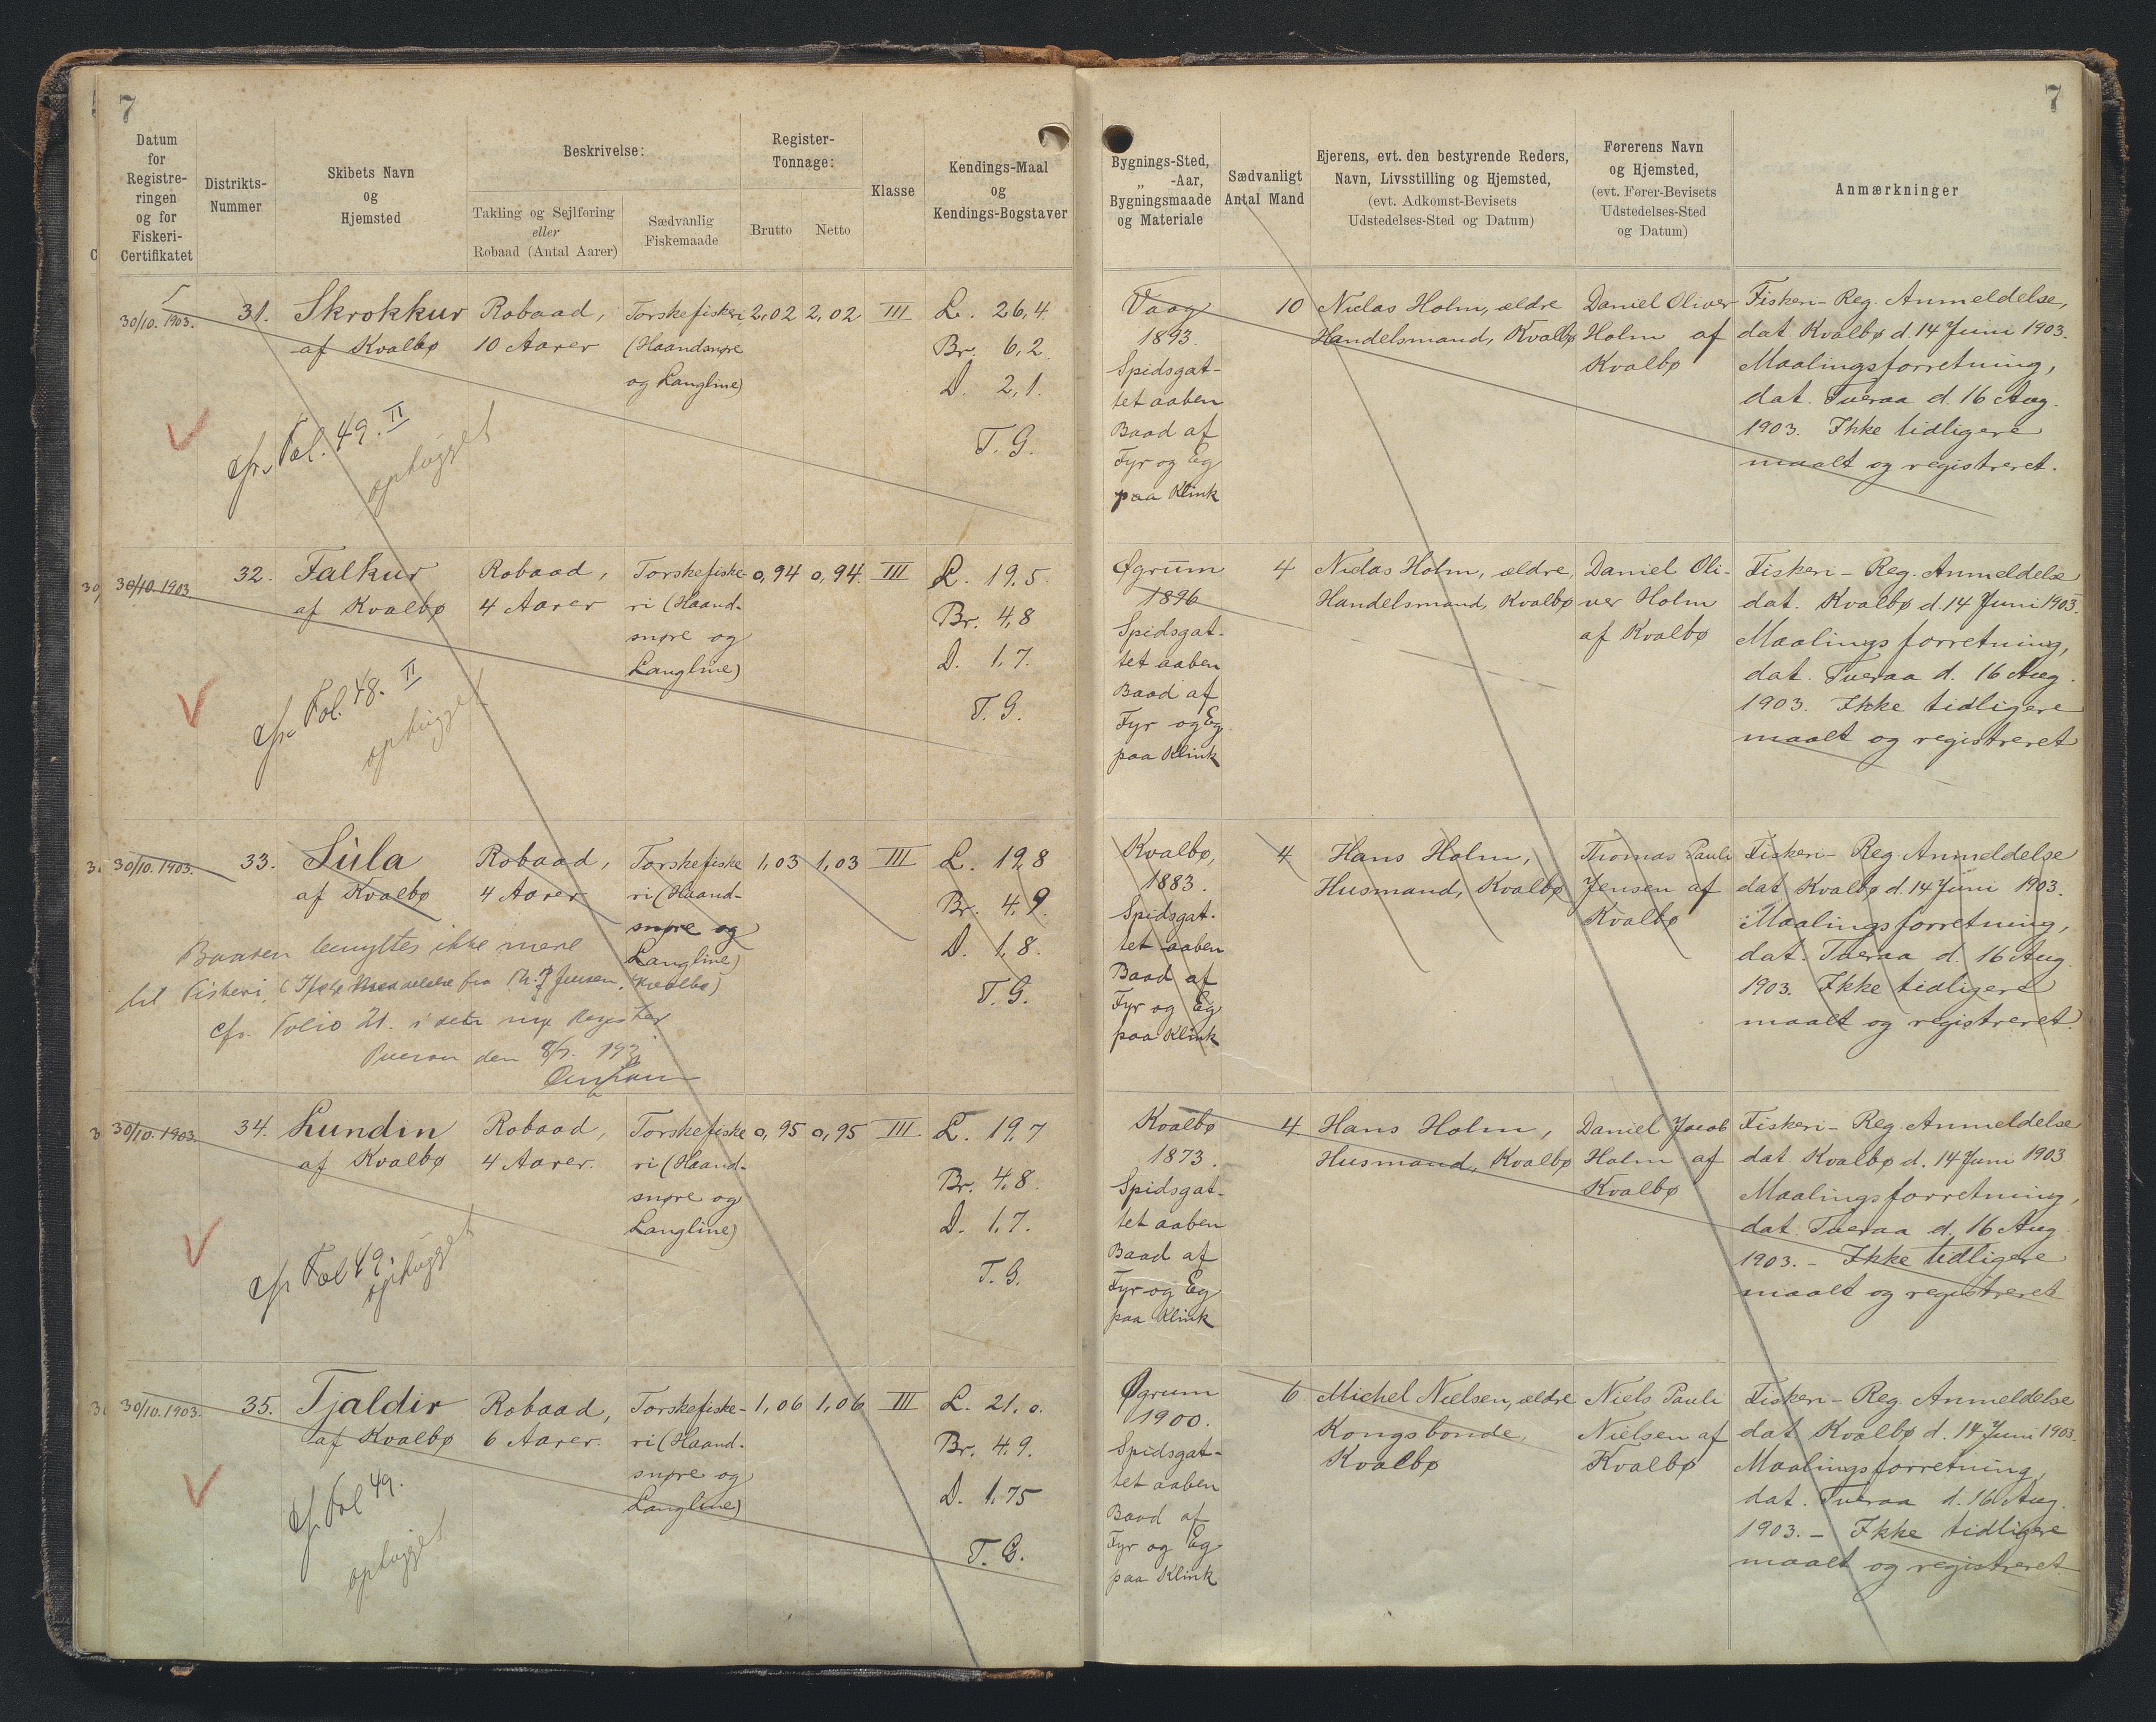 7
Datum
for
Registre-
ringen
og for
Fiskeri-
Certifikatet
Distrikts-
Nummer
Skibets Navn
og
Hjemsted
Beskrivelse:
Takling og Sejlføring
eller
Robaad (Antal Aarer)
Sædvanlig
Fiskemaade
Register-
Tonnage:
Brutto
Netto
Klasse
Kendings-Maal
og
Kendings-Bogstaver
7
Bygnings-Sted,
„ -Aar,
Bygningsmaade
og Materiale
Sædvanligt
Antal Mand
Ejerens, evt. den bestyrende Reders,
Navn, Livsstilling og Hjemsted,
(evt. Adkomst-Bevisets
Udstedelses-Sted og Datum)
Førerens Navn
og Hjemsted,
(evt. Fører-Bevisets
Udstedelses-Sted
og Datum)
Anmærkninger
30/10. 1903.
31.
Skrokkur
af Kvalbø
Robaad,
10 Aarer
Torskefiskeri
(Haandsnøre
og Langline)
2,02
2,02
III
L. 26,4
Br. 6,2
D. 2,1.
T. G.
cfr. Fol. 49. II
ophugget
Vaag
1893.
Spidsgat-
tet aaben
Baad af
Fyr og Eg
paa Klink
10
Niclas Holm, ældre
Handelsmand, Kvalbø
Daniel Oliver
Holm af
Kvalbø
Fiskeri-Reg. Anmeldelse,
dat Kvalbø d. 14 Juni 1903.
Maalingsforretning,
dat. Tveraa d. 16 Aug.
1903. Ikke tidligere
maalt og registreret.
30/10. 1903.
32.
Falkur
af Kvalbø
Robaad,
4 Aarer
Torskefiske-
ri (Haand-
snøre og
Langline)
0,94
0,94
III
L. 19,5
Br. 4,8
D. 1,7.
T. G.
cfr. Fol. 48. II
ophugget
Øgrum
1896
Spidsgat-
tet aaben
Baad af
Fyr og Eg
paa Klink
4
Niclas Holm, ældre,
Handelsmand, Kvalbø
Daniel Oli-
ver Holm
af Kvalbø
Fiskeri-Reg. Anmeldelse
dat. Kvalbø d. 14 Juni 1903.
Maalingsforretning,
dat. Tveraa d. 16 Aug.
1903. Ikke tidligere
maalt og registreret
30/10. 1903.
33.
Súla
af Kvalbø
Robaad,
4 Aarer
Torskefiske
ri (Haand-
snøre og
Langline)
1,03
1,03
III
L. 19,8
Br. 4,9.
D. 1,8.
T. G.
Baaden benyttes ikke mere
til Fiskeri (Ifølge Meddelelse fra Th. P. Jensen, Kvalbø)
cfr. Folio 21. i det nye Register
Tveraa den
Kvalbø,
1883.
Spidsgat-
tet aaben
Baad af
Fyr og Eg
paa Klink
4
Hans Holm,
Husmand, Kvalbø
Thomas Pauli
Jensen af
Kvalbø
Fiskeri-Reg. Anmeldelse
dat Kvalbø d. 14 Juni 1903.
Maalingsforretning,
dat. Tveraa d. 16 Aug.
1903. Ikke tidligere
maalt og registreret.
30/10. 1903.
34.
Lundin
af Kvalbø
Robaad,
4 Aarer.
Torskefiske
ri (Haand-
snøre og
Langline)
0,95
0,95
III
L. 19,7
Br. 4,8.
D. 1,7.
T. G.
cfr Fol 49.
ophugget
Kvalbø
1873.
Spidsgat-
tet aaben
Baad af
Fyr og Eg
paa Klink
4
Hans Holm,
Husmand, Kvalbø
Daniel Jacob
Holm af
Kvalbø
Fiskeri-Reg. Anmeldelse
dat Kvalbø d. 14 Juni 1903
Maalingsforretning,
dat. Tveraa d. 16 Aug
1903. - Ikke tidligere
maalt og registreret
30/10. 1903.
35.
Tjaldir
af Kvalbø
Robaad,
6 Aarer.
Torskefiske-
ri (Haand-
snøre og
Langline)
1,06
1,06
III
L. 21,0.
Br. 4,9.
D. 1,75
T. G.
cfr Fol 49.
ophugget
Øgrum
1900.
Spidsgat-
tet aaben
Baad af
Fyr og Eg
paa Klink
6
Michel Nielsen, ældre
Kongsbonde,
Kvalbø
Niels Pauli
Nielsen af
Kvalbø
Fiskeri-Reg. Anmeldelse
dat. Kvalbø d. 14 Juni 1903.
Maalingsforretning,
dat. Tveraa d. 16 Aug.
1903. - Ikke tidligere
maalt og registreret.